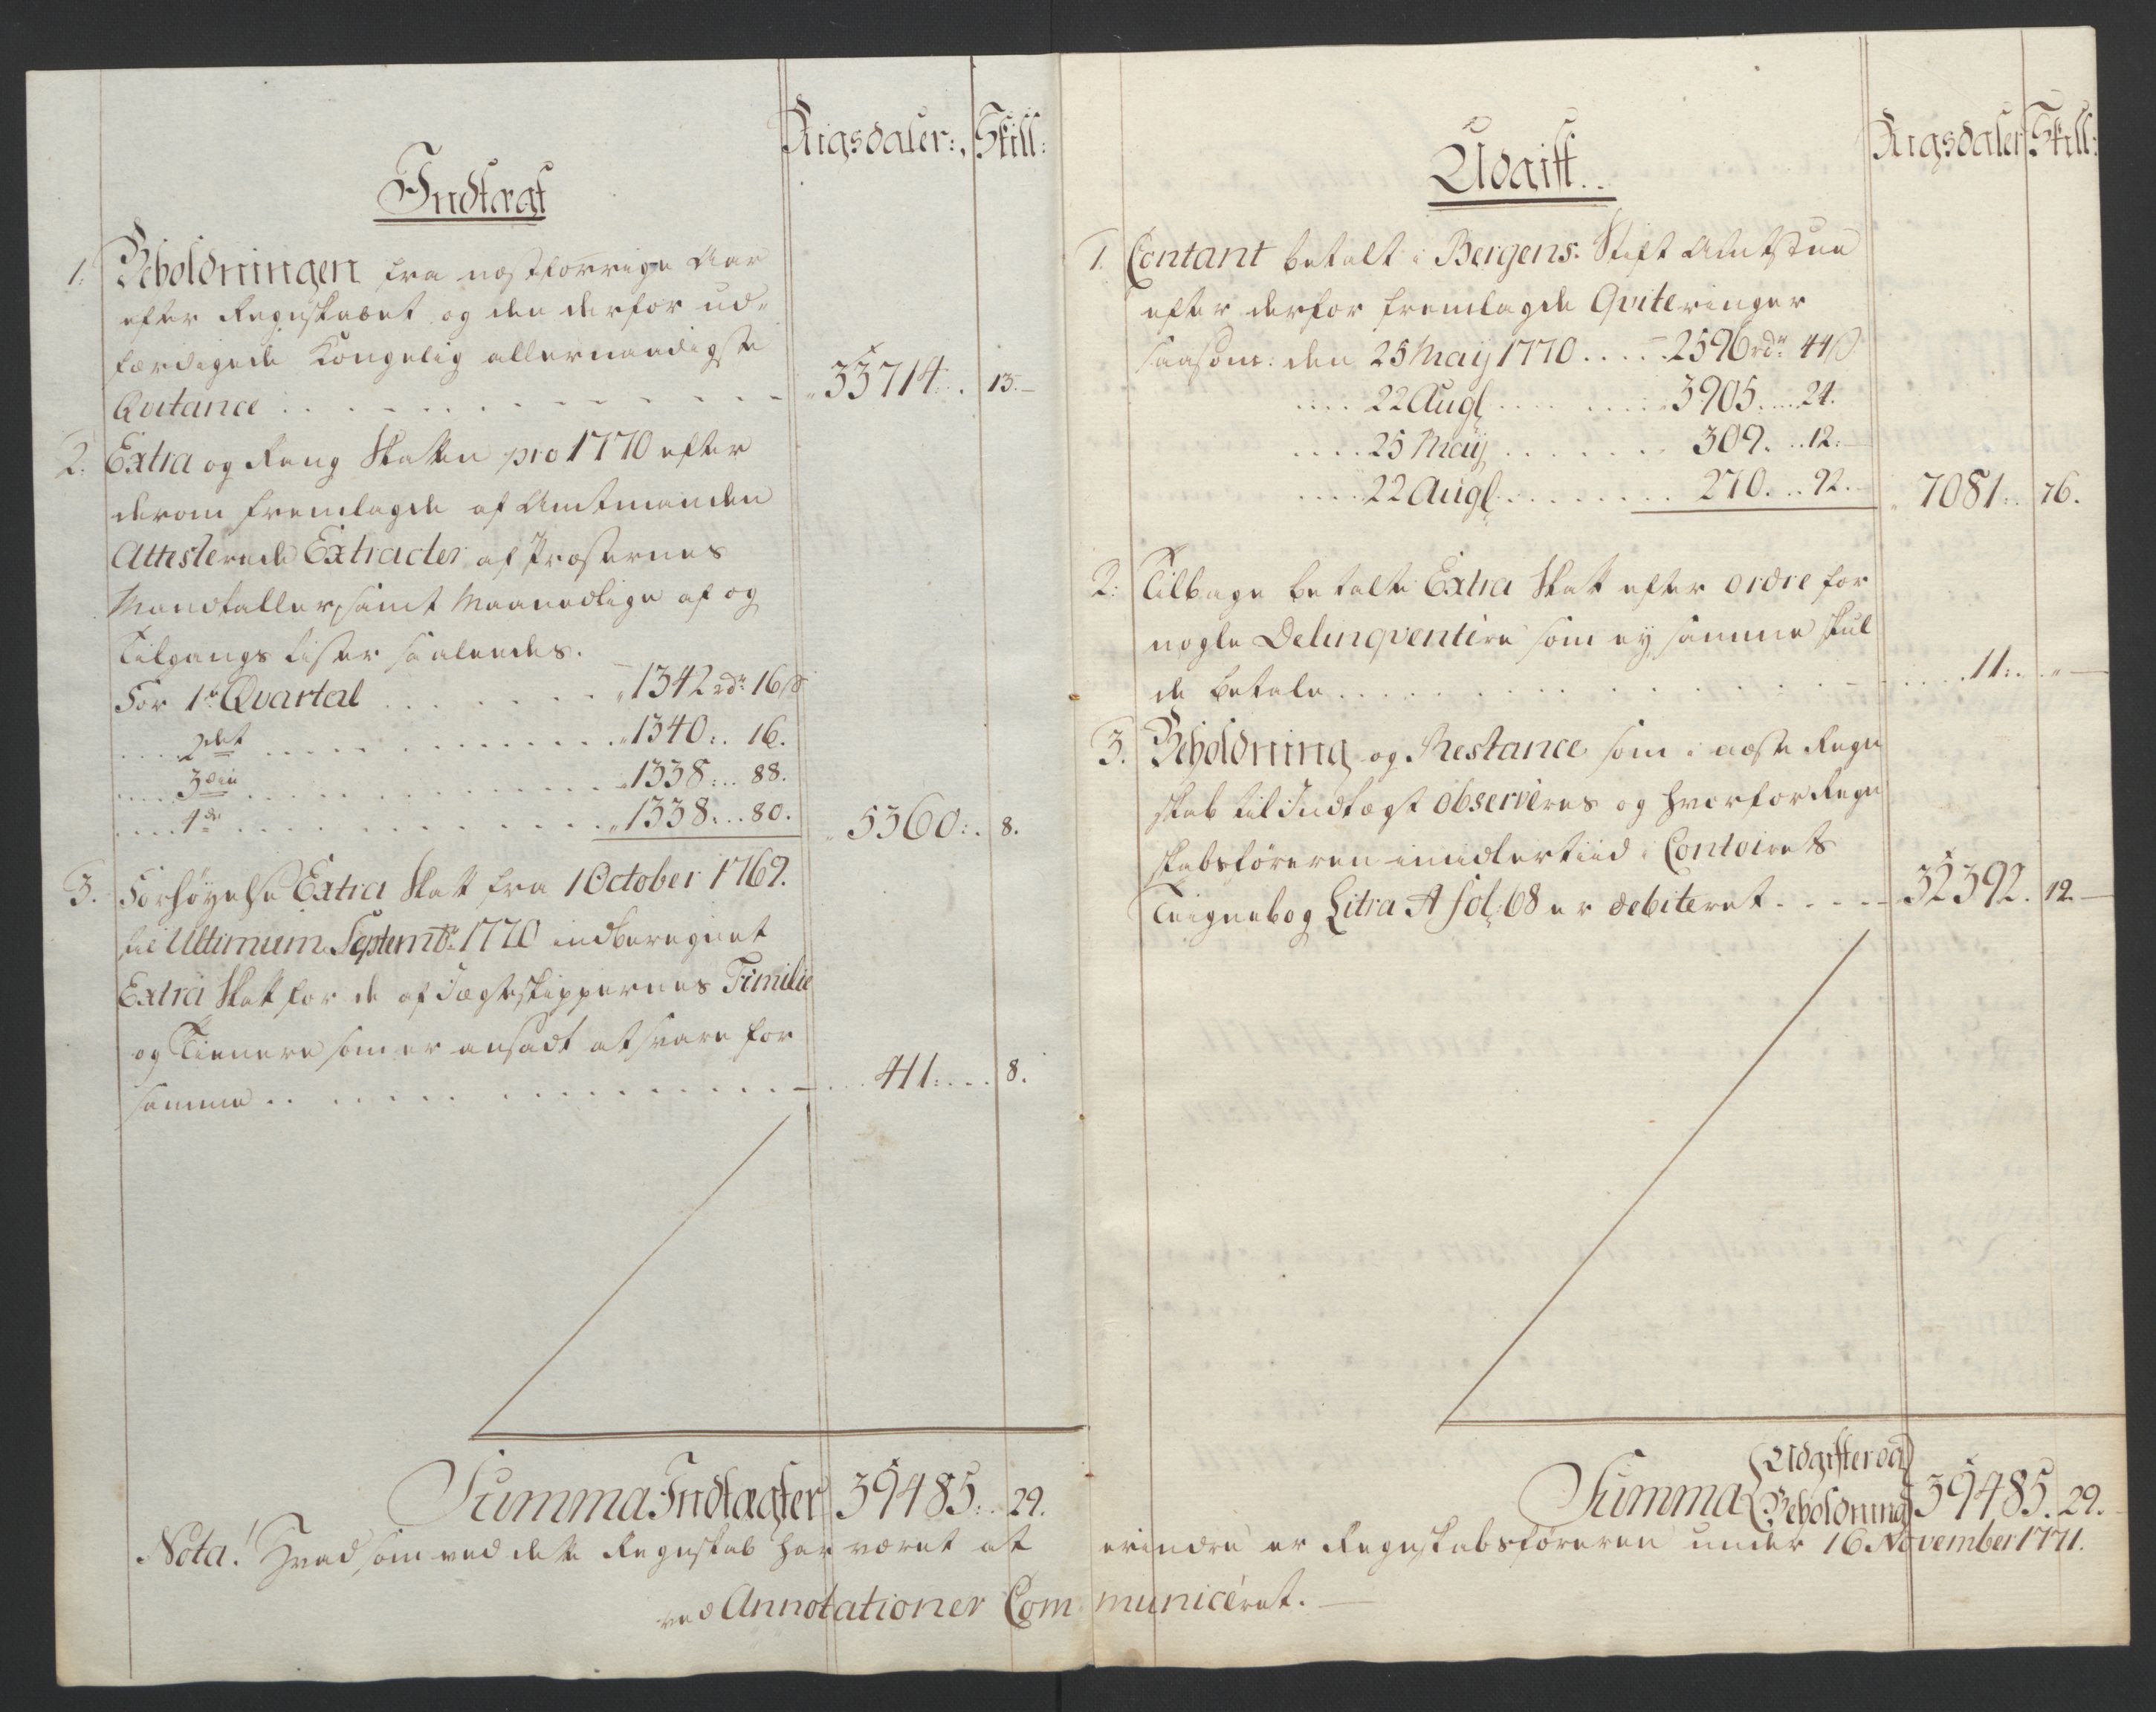 Rigsdaler: Skill:
Indtægt
1. Beholdningen fra næstforrige Aar
efter Regnskabet og den derfor ud-
færdigede Kongelig allernaadigste
Qvitance . . . . . . 33714. 13.
2. Extra og Rang Skatten pro 1770 efter
derom fremlagde af Amtmanden
Attesterede Extracter af Præsternes
Mandtaller, samt Maanedlige af og
Tilgangs Lister saaledes.
For 1te Qvartal . . . . . 1342 rdr 16 ß
. . . . 2det . . . . . 1340: 16.
. . . . 3die . . . . . 1338: 88.
. . . . 4de . . . . . 1338: 80. 5360: 8.
3. Forhøyelse Extra Skatt fra 1 October 1769.
til Ultimum Septembr 1770 indberegnet
Extra Skat for de af Jægteskippernes Familie
og Tienere som er ansadt at svare for
samme . . . . . . 411: 8.
Summa Indtægter 39485: 29.
Rigsdaler Skill:
Udgift.
1. Contant betalt i Bergens Stift Amtstue
efter derfor fremlagde Qviteringer
saasom: den 25 May 1770 . . . . 2596 rdr 44 ß
. . . . 22 Augl . . . . . 3905. 24.
. . . . 25 May . . . . . 309. 12.
. . . . 22 Augl . . . . . 270. 92. 7081: 76.
2: Tilbage betalte Extra Skat efter ordre for
nogle Delinqventere som ey samme skul
de betale . . . . . . 11: "
3. Beholdning og Restance som i næste Regn
skab til Indtægt observeres og hvorfor Regn
skabsføreren imidlertiid i Contoirets
Teignebog Litra A fol: 68 er debiteret . . . . 32392. 12
Summa Udgifter og
Beholdning 39485. 29.
Nota! Hvad som ved dette Regnskab har været at erindre er Regnskabsføreren under 16 November 1771.
ved Annotationer Communiceret.